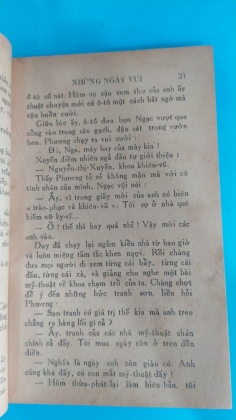 NHỮNG NGÀY VUI 21
ô-tô cô nát. Hôm nọ cậu xem thư của anh ấy
thuật chuyện mới có ô-tô một cách bất ngờ mà
cậu buồn cười.
Giữa lúc ấy, ô-tô đưa bọn Ngạc vượt qua
cổng vào trong sân gạch, đậu sát trong vườn
hoa. Phương chạy ra vui cười :
— Đi, Nga, máy bay của mày kia !
Xuyến điềm nhiên ngả đầu tự giới thiệu :
— Nguyễn-thị-Xuyến, khoa khiêu-vũ.
Thấy Phương tỏ vẻ không mặn mà với cô
tình nhân của mình, Ngạc vội nói :
— Ấy, vì trong giấy mời của anh có biên
« trào-phục và khiêu-vũ ». Tôi sợ ở nhà quê
hiếm nữ kỵ-sĩ...
— Ồ ! thế thì hay quá nhỉ ! Vậy mời các
anh vào.
Duy đã chạy lại ngắm kiểu nhà từ bao giờ
và luôn miệng tấm tắc khen ngợi. Rồi chàng
đưa mọi người đi xem từng cái bẩy, từng cái
đấu, từng cái xà, và giảng cho nghe một bài
mỹ-thuật về khoa chạm trổ của ta. Chàng chợt
để ý đến những bức tranh sơn, liền hỏi
Phương :
— Sao tranh có giá trị thế kia mà anh treo
chẳng ra hàng lối gì cả ?
— Ấy, tranh của các nhà mỹ-thuật chân
chính cả đấy. Tôi mua ngày còn ở trên đồn
điền.
— Nghĩa là ngày anh còn giàu có. Anh
cũng khá đấy, có con mắt mỹ-thuật đấy !
— Hôm thừa-phát-lại làm biên-bản, tôi